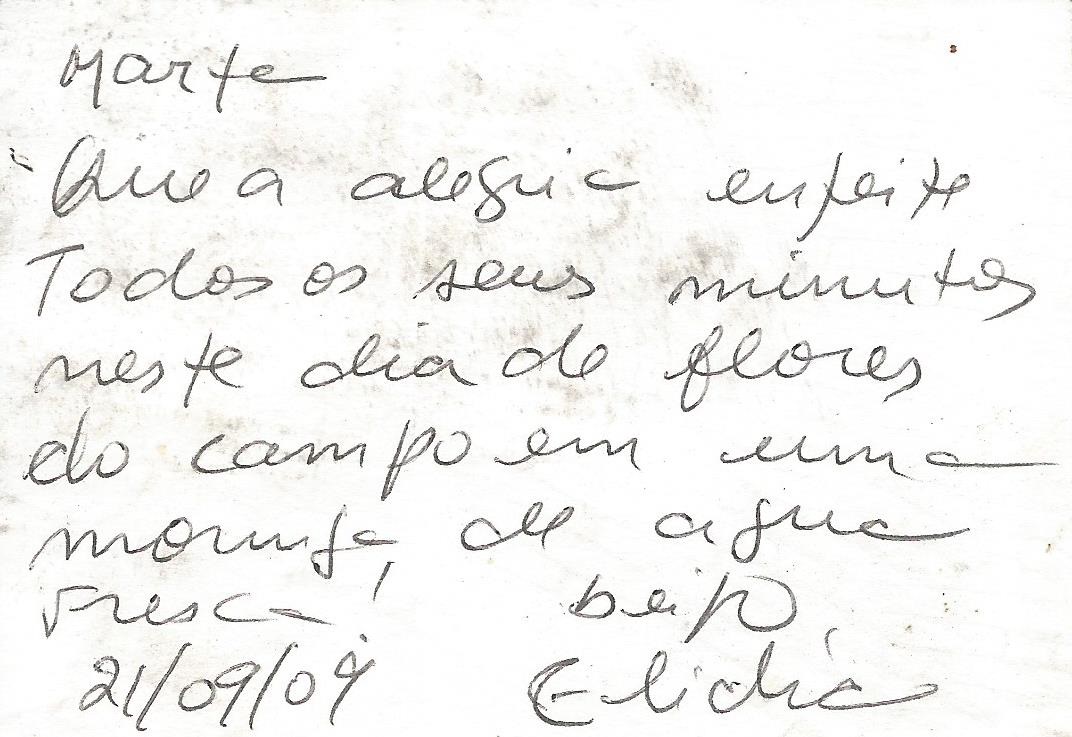 Marte
Que a alegria enfeite
Todos os seus minutos
neste dia de flores
do campo em uma
moringa de agua
Fresca! beijo,
21/09/09 Elidia